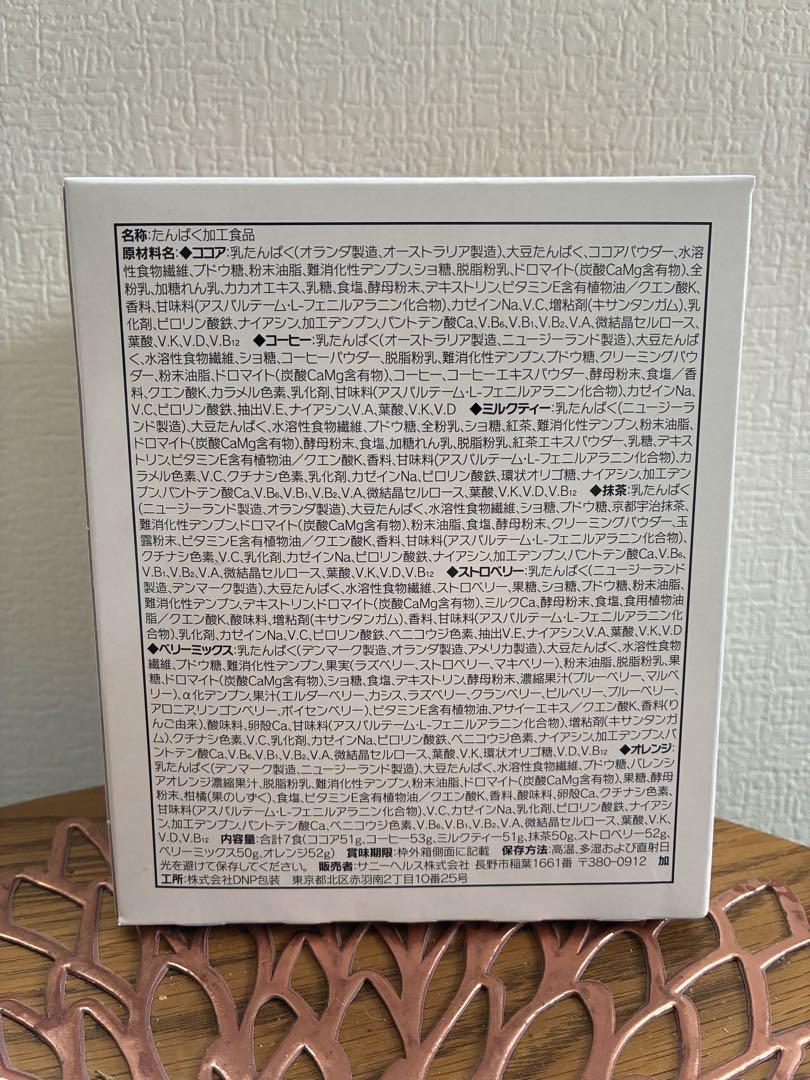 名称:たんぱく加工食品
原材料名:◆ココア:乳たんぱく(オランダ製造、オーストラリア製造)、大豆たんぱく、ココアパウダー、水溶
性食物繊維、ブドウ糖、粉末油脂、難消化性デンプン、ショ糖、脱脂粉乳、ドロマイト(炭酸CaMg含有物)、全
粉乳、加糖れん乳、カカオエキス、乳糖、食塩、酵母粉末、デキストリン、ビタミンE含有植物油/クエン酸K、
香料、甘味料(アスパルテーム・L-フェニルアラニン化合物)、カゼインNa、V.C、増粘剤(キサンタンガム)、乳
化剤、ピロリン酸鉄、ナイアシン、加工デンプン、パントテン酸Ca、V.B₆、V.B₁、V.B₂、V.A、微結晶セルロース、
葉酸、V.K、V.D、V.B₁₂ ◆コーヒー:乳たんぱく(オーストラリア製造、ニュージーランド製造)、大豆たんぱ
く、水溶性食物繊維、ショ糖、コーヒーパウダー、脱脂粉乳、難消化性デンプン、ブドウ糖、クリーミングパウ
ダー、粉末油脂、ドロマイト(炭酸CaMg含有物)、コーヒー、コーヒーエキスパウダー、酵母粉末、食塩/香
料、クエン酸K、カラメル色素、乳化剤、甘味料(アスパルテーム・L-フェニルアラニン化合物)、カゼインNa、
V.C、ピロリン酸鉄、抽出V.E、ナイアシン、V.A、葉酸、V.K、V.D ◆ミルクティー:乳たんぱく(ニュージーラ
ンド製造)、大豆たんぱく、水溶性食物繊維、ブドウ糖、全粉乳、ショ糖、紅茶、難消化性デンプン、粉末油脂、
ドロマイト(炭酸CaMg含有物)、酵母粉末、食塩、加糖れん乳、脱脂粉乳、紅茶エキスパウダー、乳糖、デキス
トリン、ビタミンE含有植物油/クエン酸K、香料、甘味料(アスパルテーム・L-フェニルアラニン化合物)、カ
ラメル色素、V.C、乳化剤、カゼインNa、ピロリン酸鉄、環状オリゴ糖、ナイアシン、加工デン
プン、パントテン酸Ca、V.B₆、V.B₁、V.B₂、V.A、微結晶セルロース、葉酸、V.K、V.D、V.B₁₂ ◆抹茶:乳たんぱく
(ニュージーランド製造、オランダ製造)、大豆たんぱく、水溶性食物繊維、ショ糖、ブドウ糖、京都宇治抹茶、
難消化性デンプン、ドロマイト(炭酸CaMg含有物)、粉末油脂、食塩、酵母粉末、クリーミングパウダー、玉
露粉末、ビタミンE含有植物油/クエン酸K、香料、甘味料(アスパルテーム・L-フェニルアラニン化合物)、
クチナシ色素、V.C、乳化剤、カゼインNa、ピロリン酸鉄、ナイアシン、加工デンプン、パントテン酸Ca、V.B₆、
V.B₁、V.B₂、V.A、微結晶セルロース、葉酸、V.K、V.D、V.B₁₂ ◆ストロベリー:乳たんぱく(ニュージーランド
製造、デンマーク製造)、大豆たんぱく、水溶性食物繊維、ストロベリー、果糖、ショ糖、ブドウ糖、粉末油脂、
難消化性デンプン、デキストリン、ドロマイト(炭酸CaMg含有物)、ミルクCa、酵母粉末、食塩、食用植物油
脂/クエン酸K、酸味料、増粘剤(キサンタンガム)、香料、甘味料(アスパルテーム・L-フェニルアラニン化合
物)、乳化剤、カゼインNa、V.C、ピロリン酸鉄、ベニコウジ色素、抽出V.E、ナイアシン、V.A、葉酸、V.K、V.D
◆ベリーミックス:乳たんぱく(デンマーク製造、オランダ製造、アメリカ製造)、大豆たんぱく、水溶性食物
繊維、ブドウ糖、難消化性デンプン、果実(ラズベリー、ストロベリー、マキベリー)、粉末油脂、脱脂粉乳、果
糖、ドロマイト(炭酸CaMg含有物)、ショ糖、食塩、デキストリン、酵母粉末、濃縮果汁(ブルーベリー、マルベ
リー)、α化デンプン、果汁(エルダーベリー、カシス、ラズベリー、クランベリー、ビルベリー、ブルーベリー、
アロニア、リンゴンベリー、ボイセンベリー)、ビタミンE含有植物油、アサイーエキス/クエン酸K、香料(り
んご由来)、酸味料、卵殻Ca、甘味料(アスパルテーム・L-フェニルアラニン化合物)、増粘剤(キサンタンガ
ム)、クチナシ色素、V.C、乳化剤、カゼインNa、ピロリン酸鉄、ベニコウジ色素、ナイアシン、加工デンプン、パ
ントテン酸Ca、V.B₆、V.B₁、V.B₂、V.A、微結晶セルロース、葉酸、V.K、環状オリゴ糖、V.D、V.B₁₂ ◆オレンジ:
乳たんぱく(デンマーク製造、ニュージーランド製造)、大豆たんぱく、水溶性食物繊維、ブドウ糖、バレンシ
アオレンジ濃縮果汁、脱脂粉乳、難消化性デンプン、粉末油脂、ドロマイト(炭酸CaMg含有物)、果糖、酵母
粉末、柑橘(果のしずく)、食塩、ビタミンE含有植物油/クエン酸K、香料、酸味料、卵殻Ca、クチナシ色素、
甘味料(アスパルテーム・L-フェニルアラニン化合物)、V.C、カゼインNa、乳化剤、ピロリン酸鉄、ナイアシ
ン、加工デンプン、パントテン酸Ca、ベニコウジ色素、V.B₆、V.B₁、V.B₂、V.A、微結晶セルロース、葉酸、V.K、
V.D、V.B₁₂ 内容量:合計7食(ココア51g、コーヒー53g、ミルクティー51g、抹茶50g、ストロベリー52g、
ベリーミックス50g、オレンジ52g) 賞味期限:枠外箱側面に記載 保存方法:高温、多湿および直射日
光を避けて保存してください。 販売者:サニーヘルス株式会社 長野市稲葉1661番 〒380-0912 加
工所:株式会社DNP包装 東京都北区赤羽南2丁目10番25号